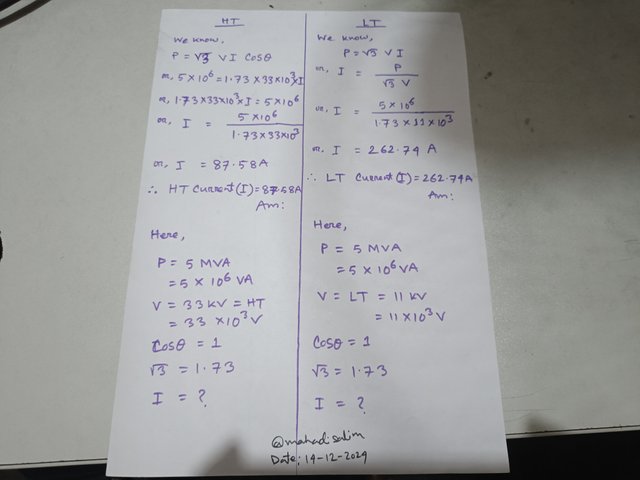 HT
We know,
P = √3 V I Cosθ
or, 5×10⁶ = 1.73×33×10³×I
or, 1.73×33×10³×I = 5×10⁶
or, I = 5×10⁶ / 1.73×33×10³
or, I = 87.58A
∴ HT Current (I) = 87.58A
Am:
Here,
P = 5 MVA
= 5 × 10⁶ VA
V = 33 KV = HT
= 33 ×10³ V
Cosθ = 1
√3 = 1.73
I = ?
LT
We know,
P = √3 V I
or, I = P / √3 V
or, I = 5×10⁶ / 1.73×11×10³
or, I = 262.74 A
∴ LT Current (I) = 262.74A
Am:
Here,
P = 5 MVA
= 5 × 10⁶ VA
V = LT = 11 KV
= 11×10³ V
Cosθ = 1
√3 = 1.73
I = ?
@mahadisalim
Date: 14-12-2024